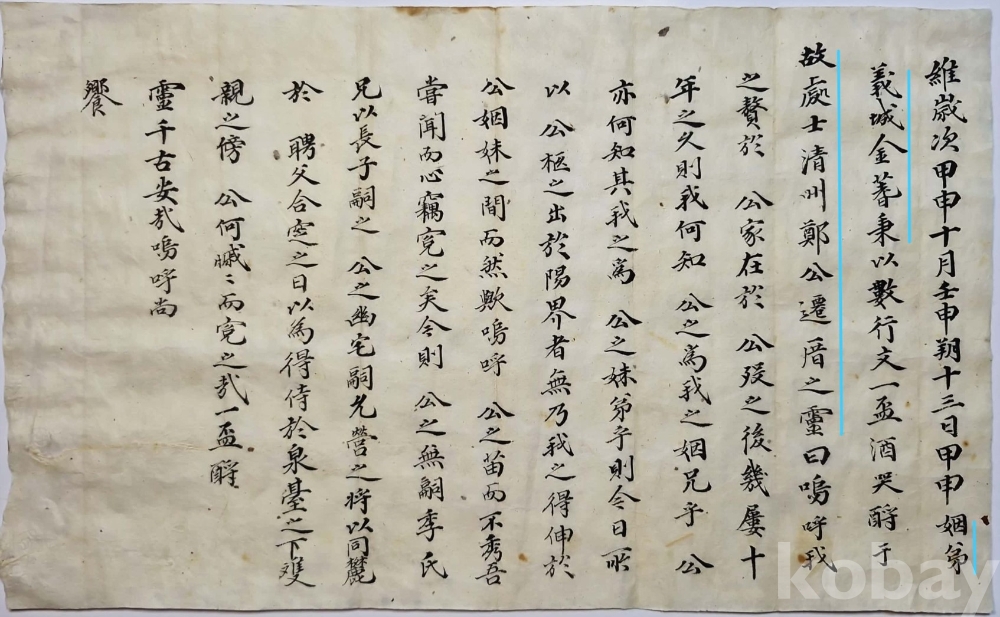 維歲次甲申十月壬申朔十三日甲申姻弟
義城金蓍秉以數行文一盃酒哭酹于
故處士清州鄭公遷厝之靈曰嗚呼我
之贅於 公家在於 公歿之後幾屢十
年之久則我何知 公之爲我之姻兄乎 公
亦何知其我之爲 公之妹弟乎則今日所
以 公柩之出於陽界者無乃我之得伸於
公姻妹之間而然歟嗚呼 公之苗而不秀吾
嘗聞而心竊寃之矣今則 公之無嗣季氏
兄以長子嗣之 公之幽宅嗣允營之將以同麓
於 聘父合窆之日以爲得侍於泉臺之下雙
親之傍 公何慽〻而寃之哉一盃酹
靈千古安哉嗚呼尚
饗
kobay